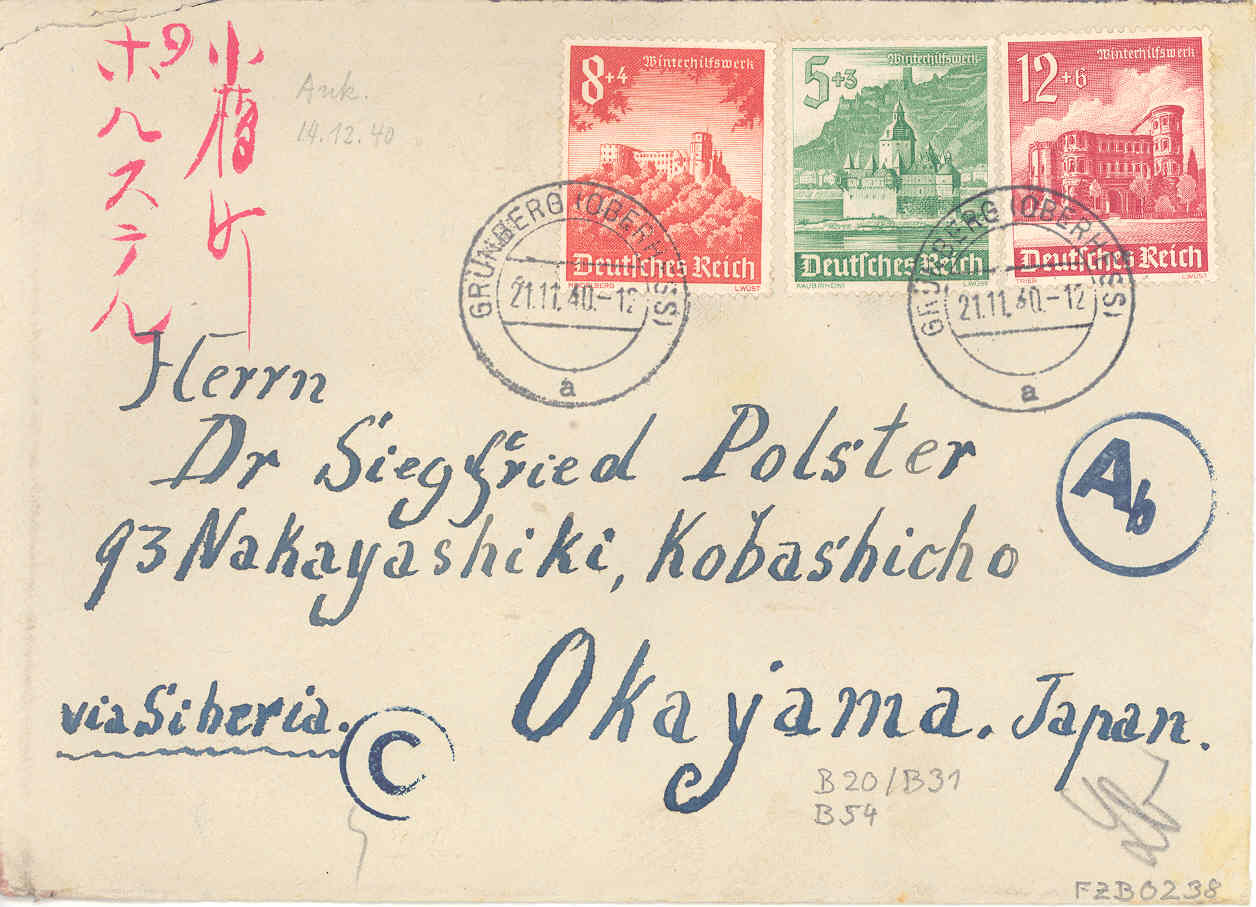 小橋町
ポルステル
Ank.
14.12.40
8+4 Winterhilfswerk
Deutsches Reich
HEIDELBERG L.WÜST
5+3 Winterhilfswerk
Deutsches Reich
KAUB/RHEIN L.WÜST
12+6 Winterhilfswerk
Deutsches Reich
TRIER L.WÜST
GRÜNBERG (OBERHESS)
21.11.40.-12
a
GRÜNBERG (OBERHESS)
21.11.40.-12
a
Herrn
Dr Siegfried Polster
Ab
93 Nakayashiki, Kobashicho
via Siberia.
C
Okayama. Japan.
B20/B31
B54
FZB0238